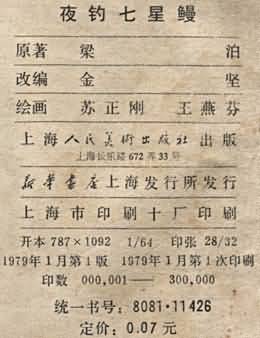 夜钓七星鳗
原著 梁 泊
改编 金 坚
绘画 苏正刚 王燕芬
上海人民美术出版社出版
上海长乐路672弄33号
新华书店上海发行所发行
上海市印刷十厂印刷
开本787×1092 1/64 印张28/32
1979年1月第1版 1979年1月第1次印刷
印数 000,001—300,000
统一书号：8081·11426
定价：0.07元